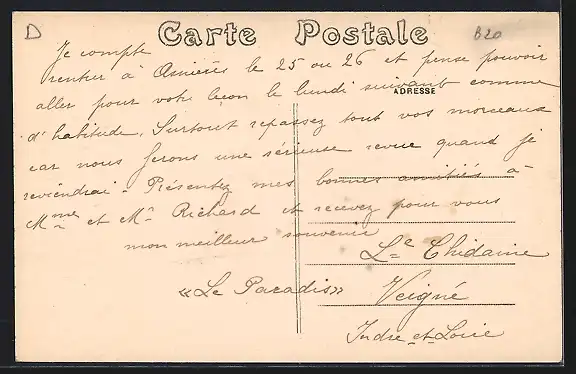 D
Carte Postale
B20
ADRESSE
Je compte
rentrer à Asnières le 25 ou 26 et pense pouvoir
aller pour votre leçon le lundi suivant comme
d'habitude. Surtout repassez tout vos morceaux
car nous ferons une sérieuse revue quand je
reviendrai - Présentez mes bonnes amitiés à
Mme et Mr Richard et recevez pour vous
mon meilleur souvenir
Lse Chidaine
"Le Paradis" Veigné
Indre et Loire